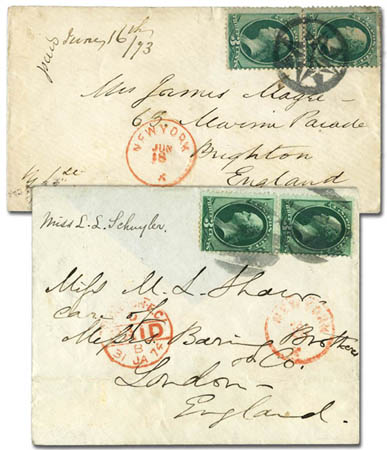 June 16th
/73
Mrs James
63 Marine Parade
Brighton
England
NEW YORK
JUN
18
Miss L. L. Schuyler.
Miss M. L. Shaw.
care of
Messrs Baring Brothers
& Co.
London—
England.
1D
8 JA 74
NEW YORK